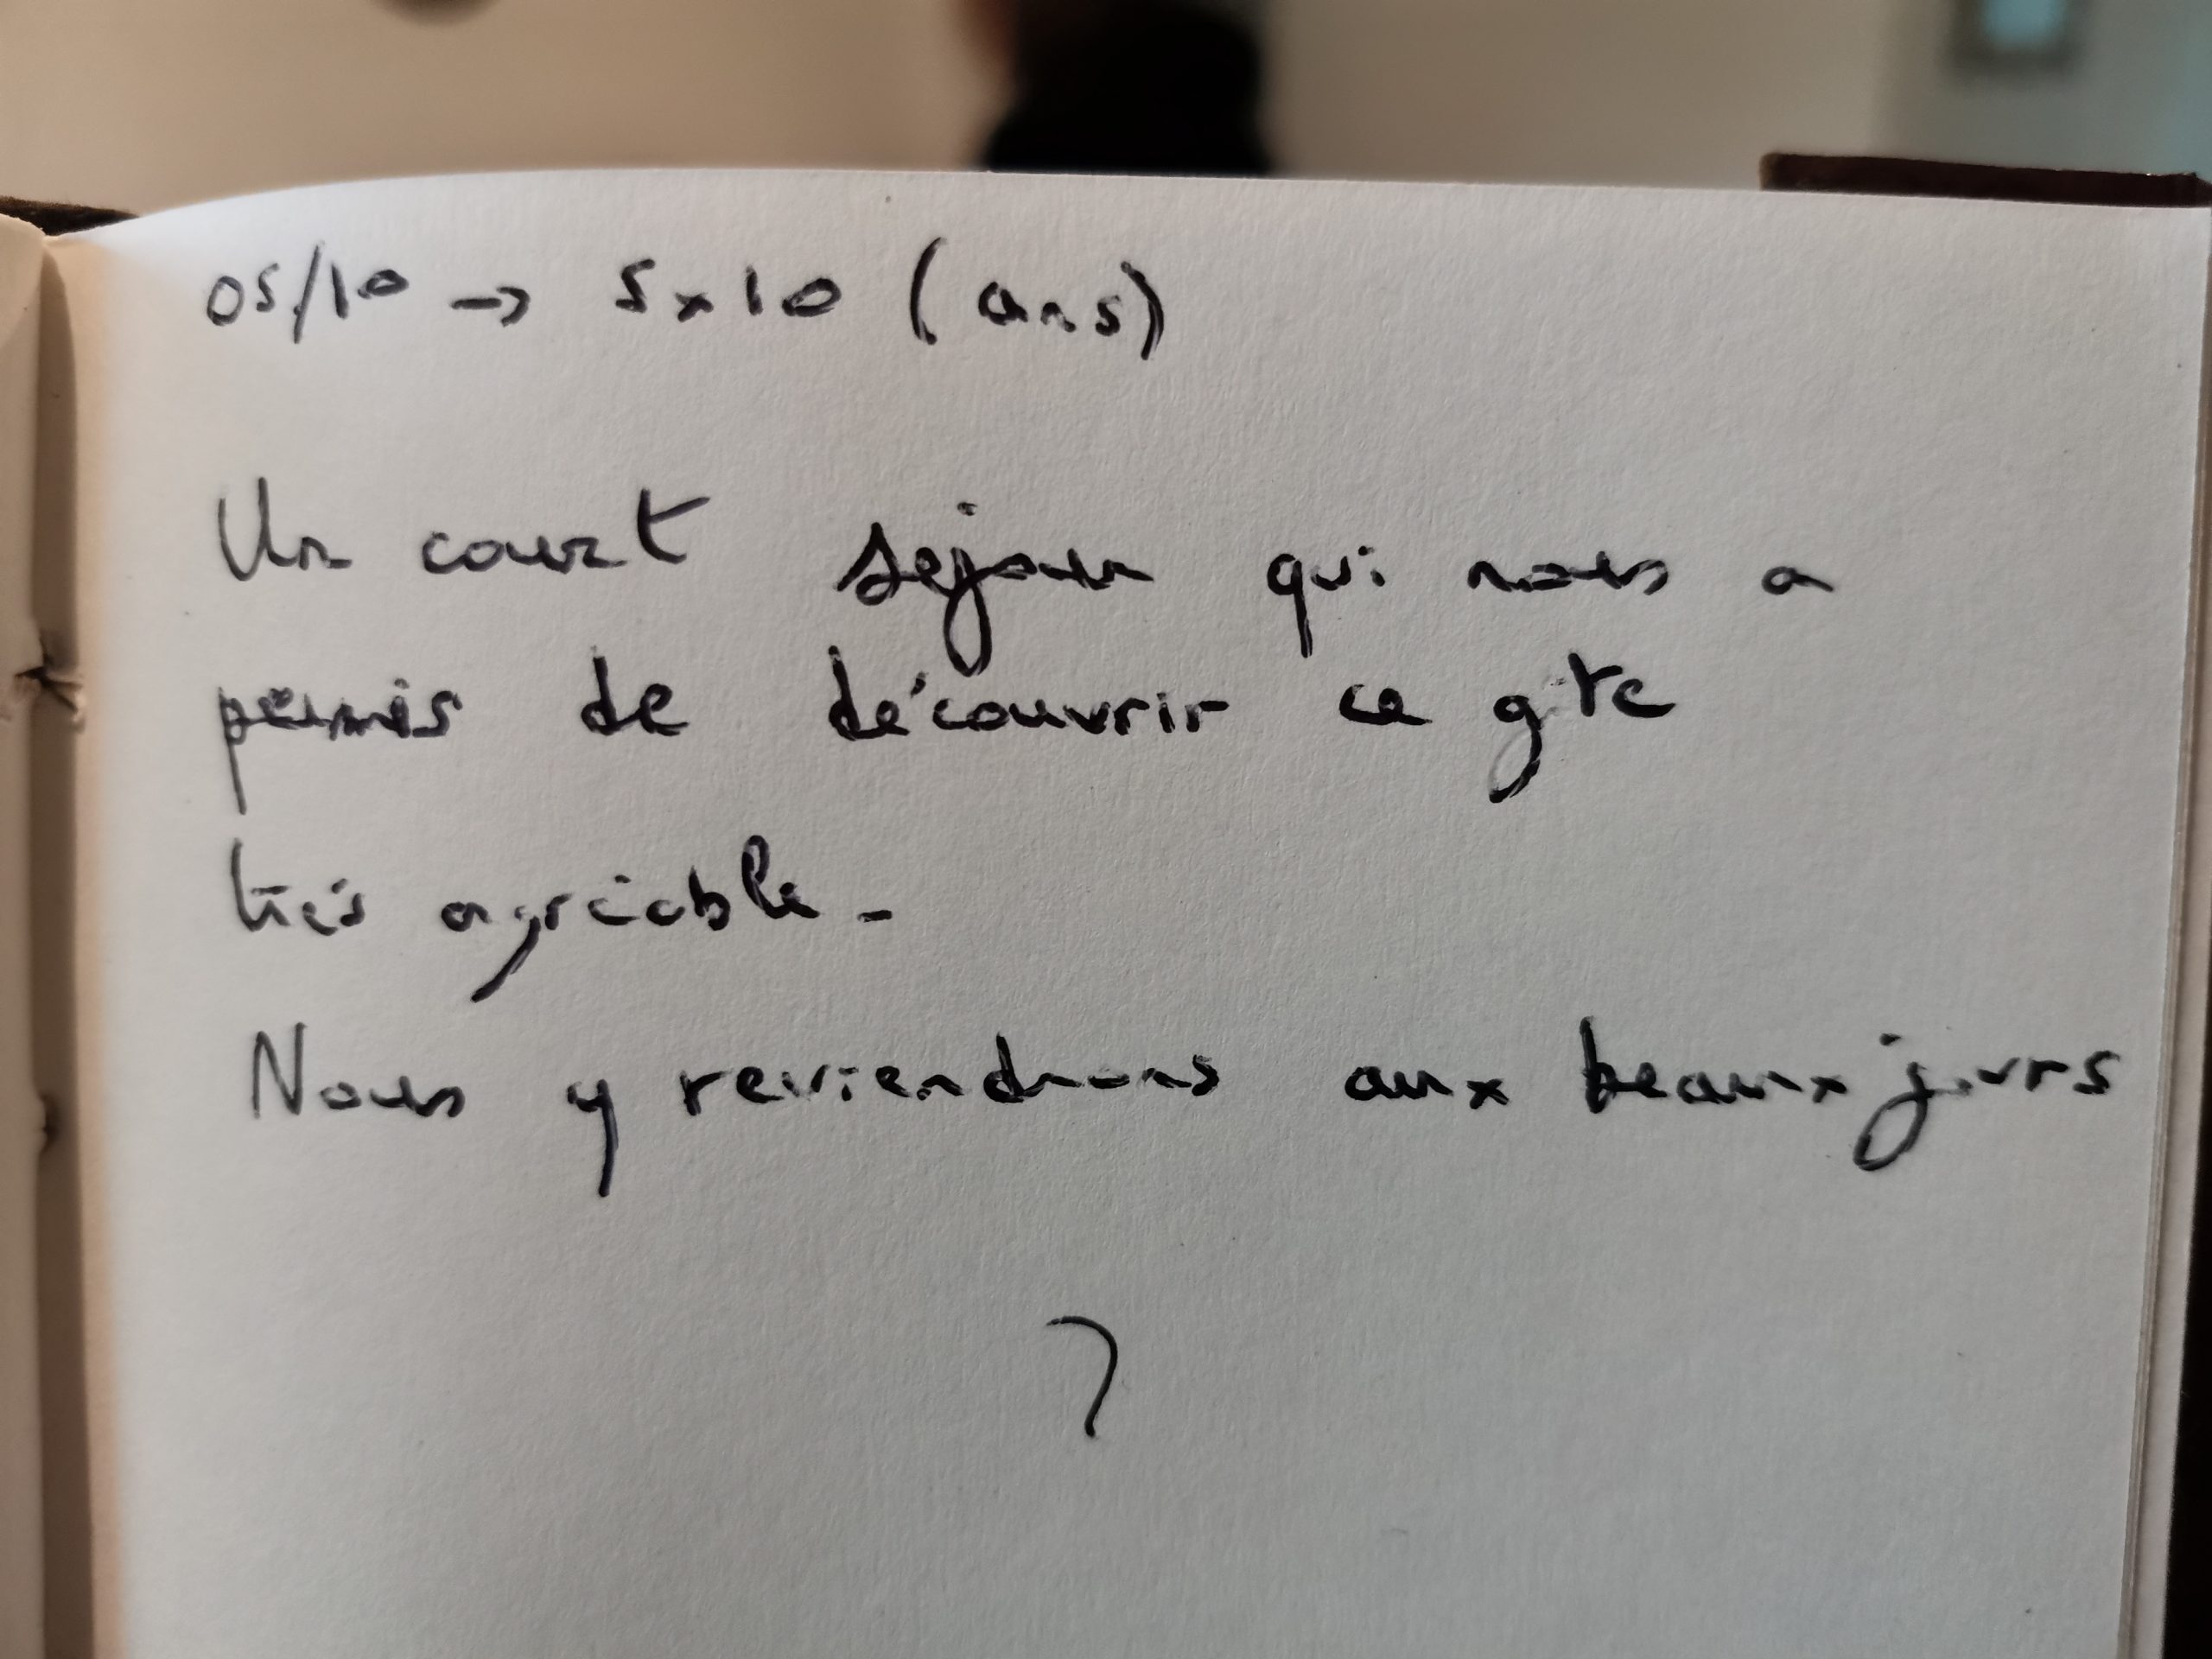 05/10 → 5x10 (ans)
Un court sejour qui nous a
permis de découvrir ce gite
très agréable -
Nous y reviendrons aux beaux jours